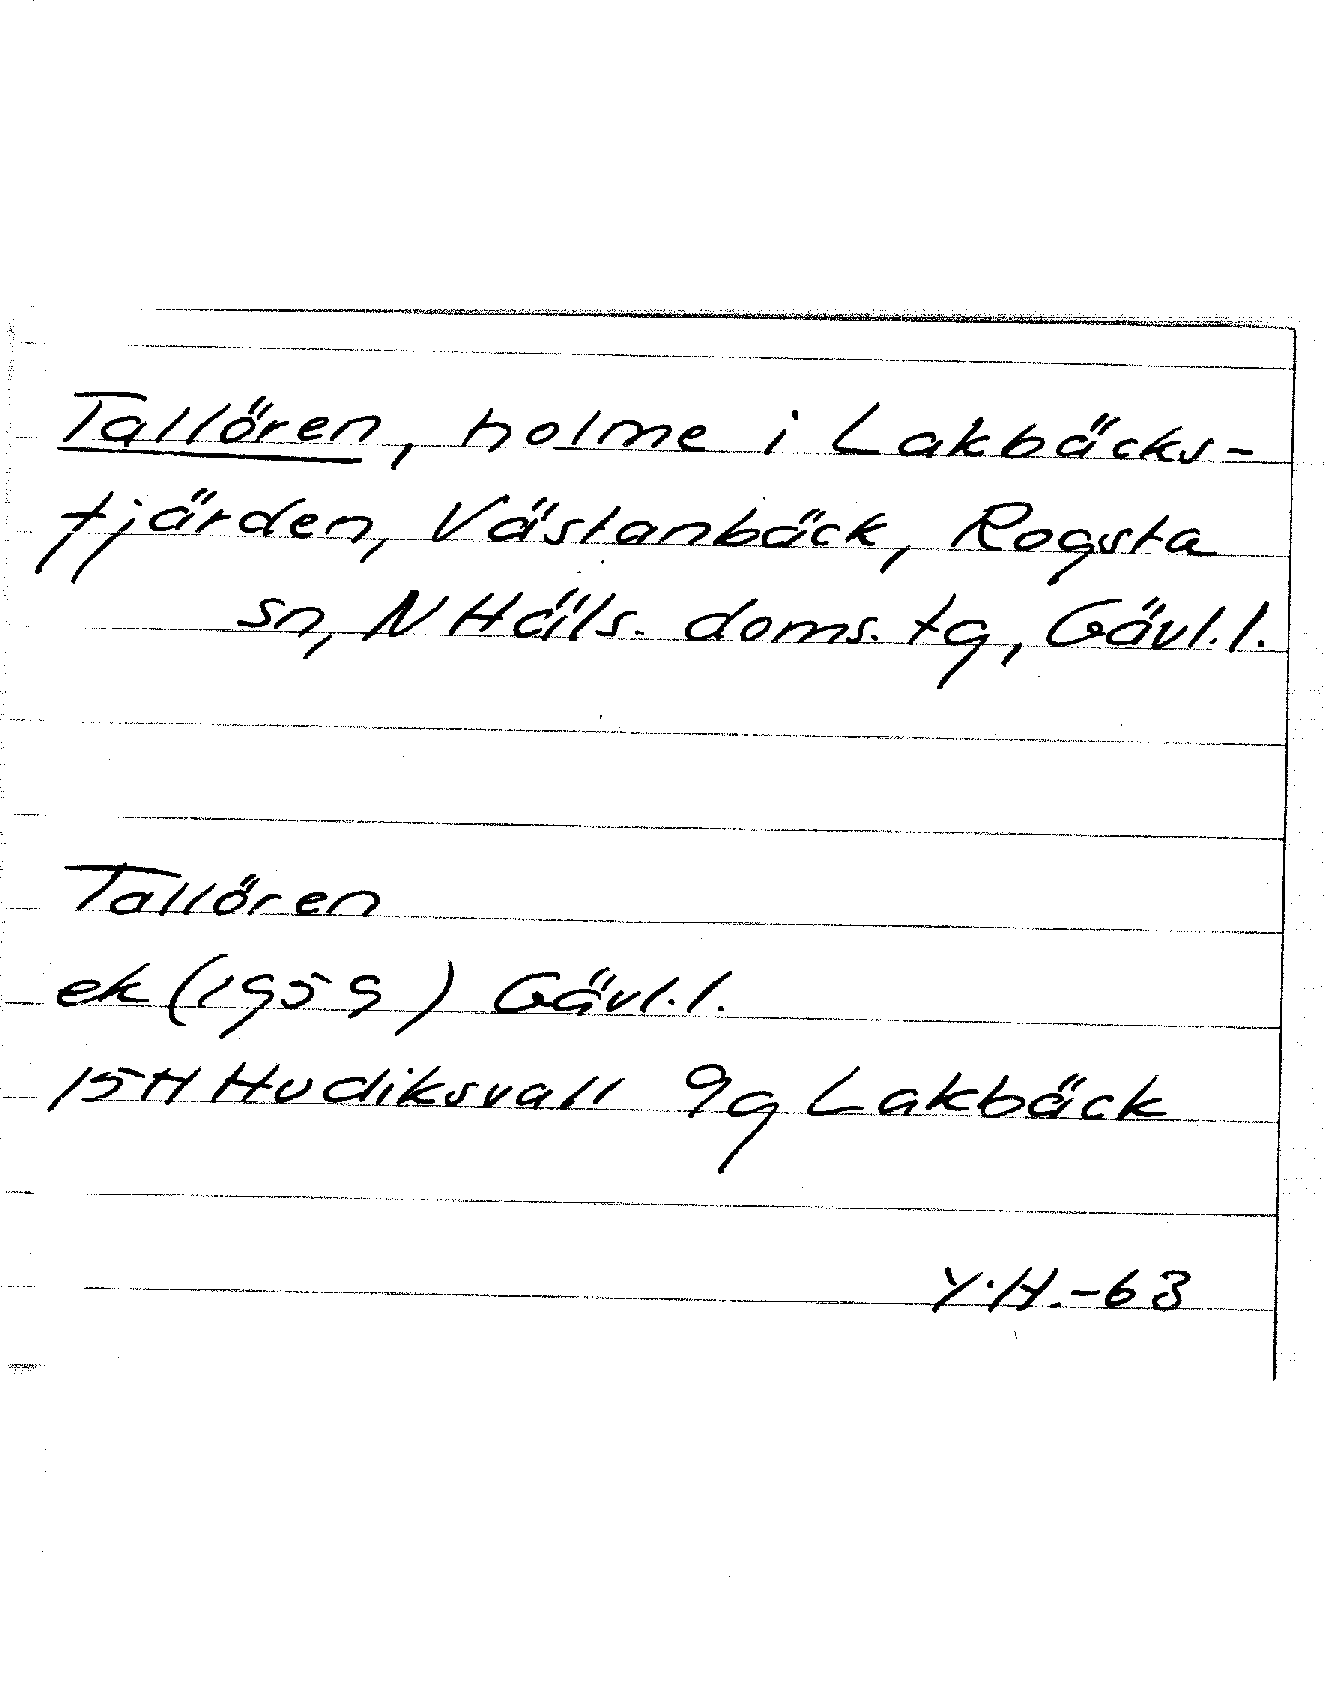 Tallören, holme i Lakbäcks-
fjärden, Västanbäck, Rogsta
sn, N Häls. doms. tg, Gävl. l.
Tallören
ek (1959) Gävl. l.
15H Hudiksvall 9g Lakbäck
Y. H. -63